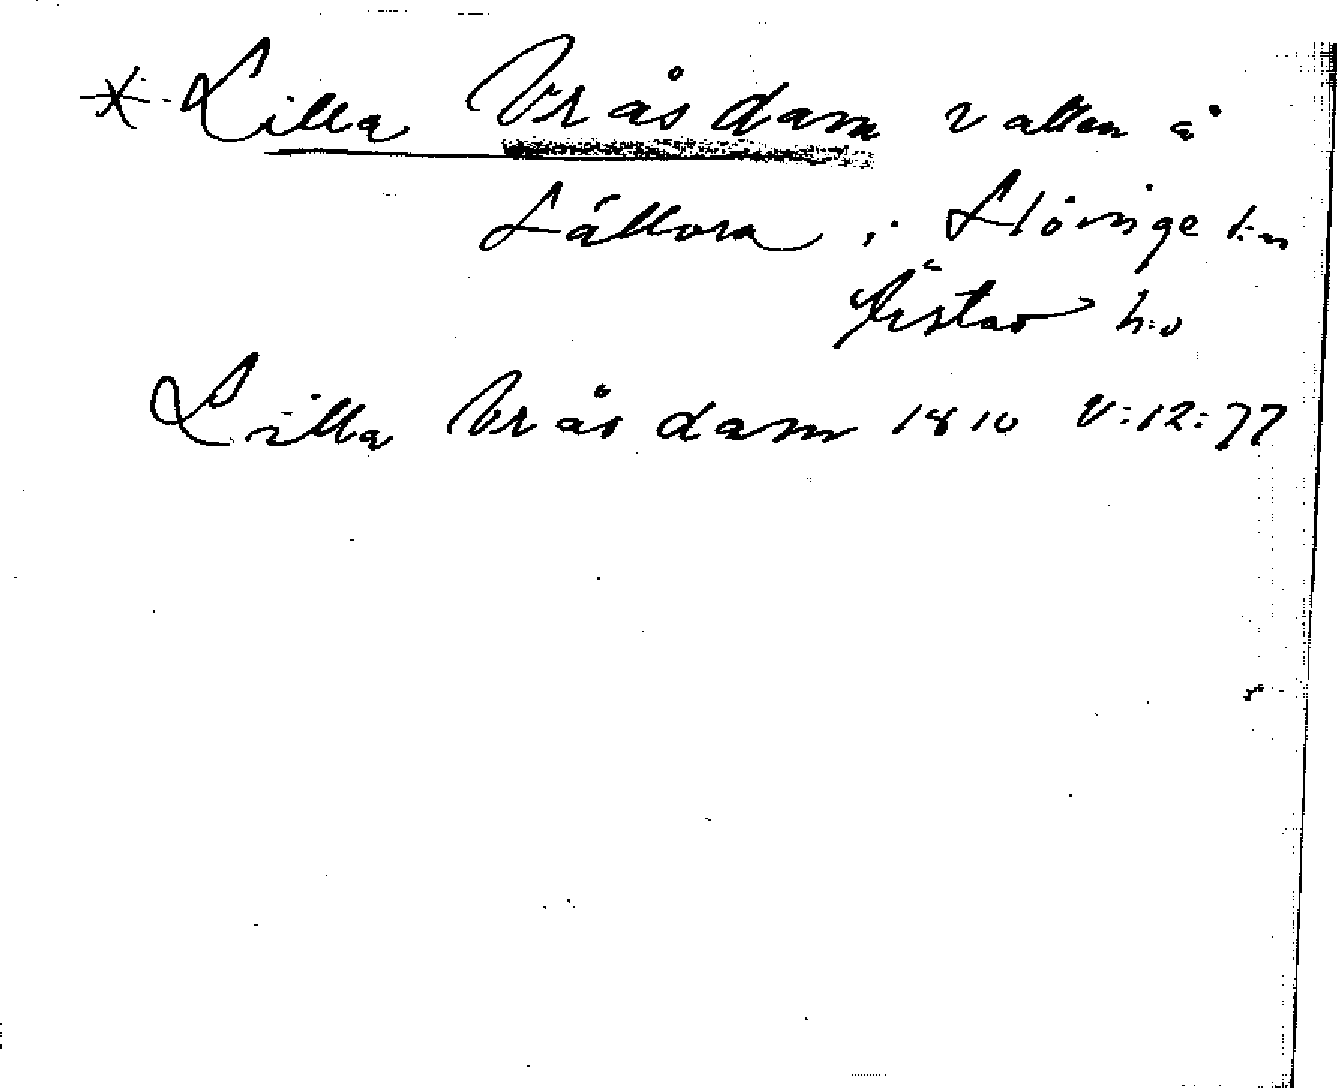 * Lilla Vråsdam vatten å
Sållora, i Slövinge h:n
Årstad h:d
Lilla Vråsdam 1810 V:12:77